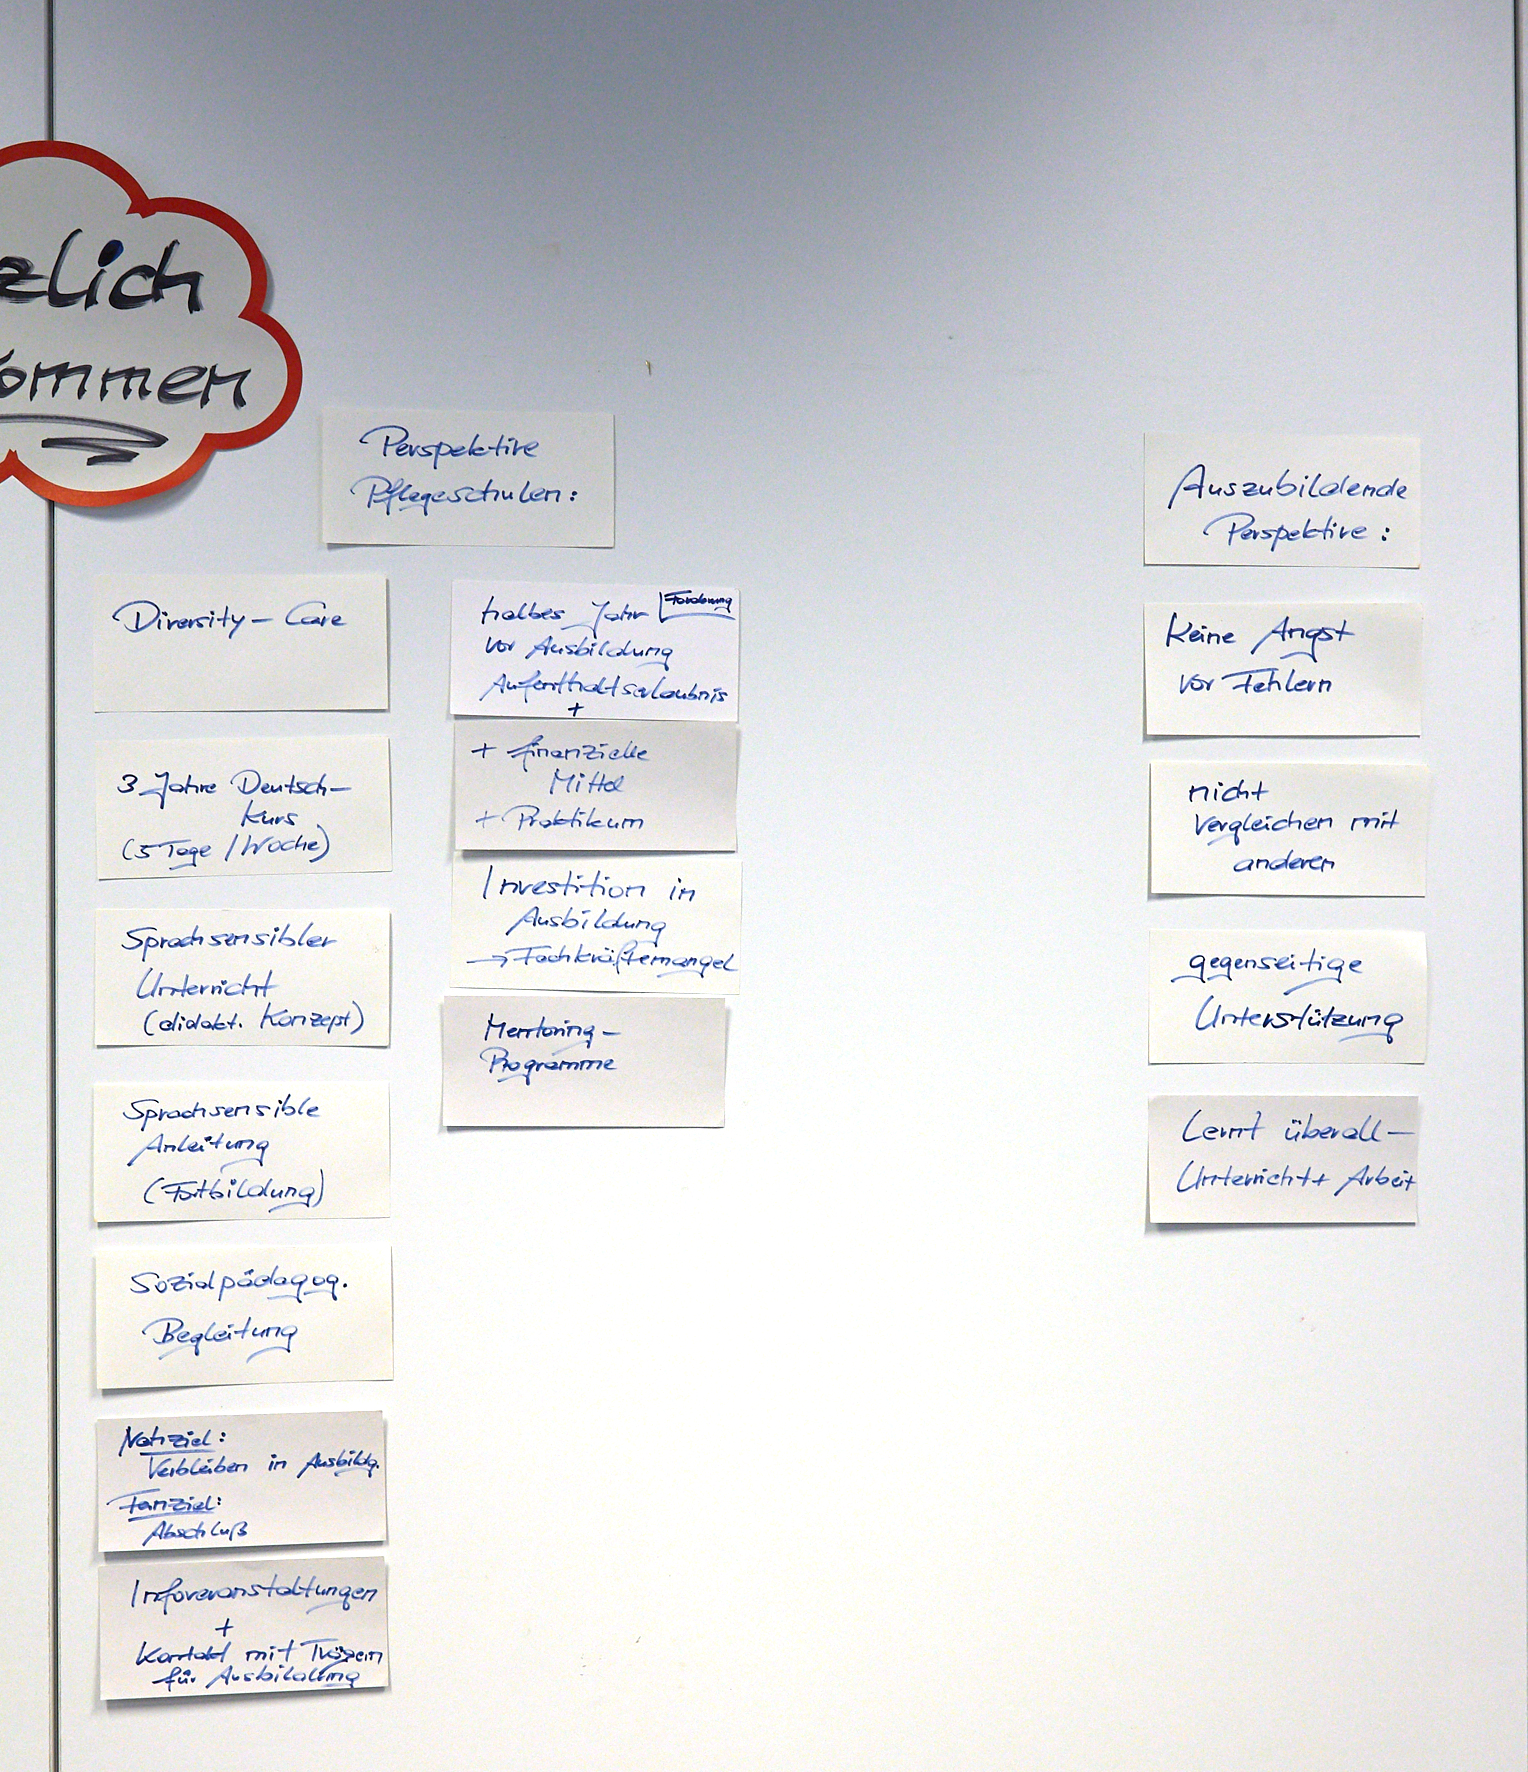 zlich
kommen
Perspektive
Pflegeschulen:
Diversity - Care
3 Jahre Deutsch-
kurs
(5 Tage / Woche)
Sprachsensibler
Unterricht
(didakt. Konzept)
Sprachsensible
Anleitung
(Fortbildung)
Sozialpädagog.
Begleitung
Nahziel:
Verbleiben in Ausbildg.
Fernziel:
Abschluß
Infoveranstaltungen
+
Kontakt mit Trägern
für Ausbildung
halbes Jahr Forderung
vor Ausbildung
Aufenthaltserlaubnis
+
+ finanzielle
Mittel
+ Praktikum
Investition in
Ausbildung
→ Fachkräftemangel
Mentoring-
Programme
Auszubildende
Perspektive:
Keine Angst
vor Fehlern
nicht
vergleichen mit
anderen
gegenseitige
Unterstützung
Lernt überall -
Unterricht + Arbeit